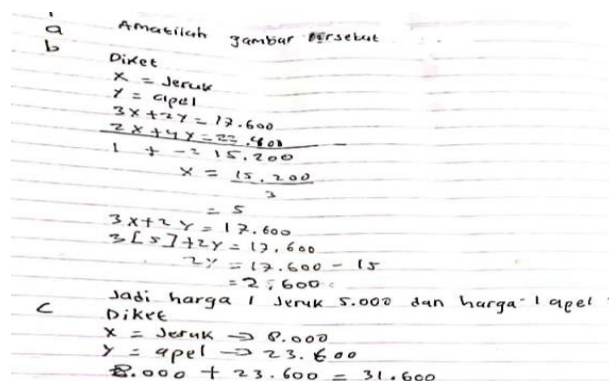 a Amatilah gambar tersebut
b
Diket
x = Jeruk
y = apel
3x+2y = 17.600
2x+4y = 22.400
1 + - = 15.200
x = 15.200
3
= 5
3x+2y = 17.600
3[5]+2y = 17.600
2y = 17.600 - 15
= 2.600
Jadi harga 1 Jeruk 5.000 dan harga 1 apel
c Diket
x = Jeruk -> 8.000
y = apel -> 23.600
8.000 + 23.600 = 31.600